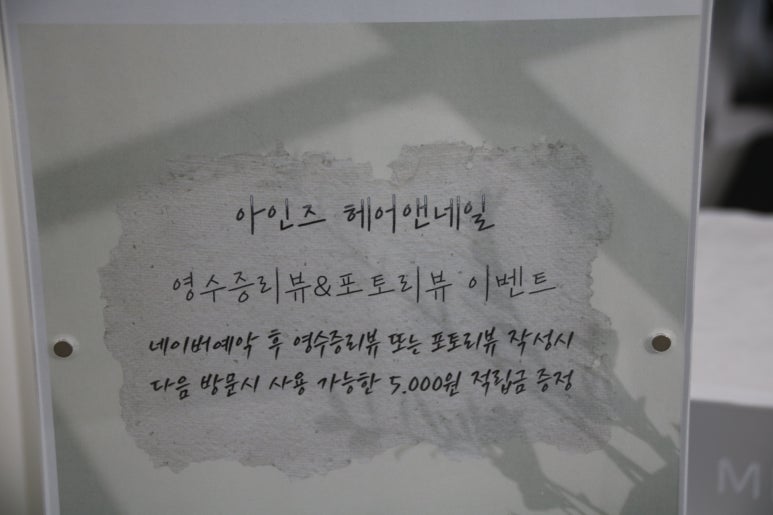 아인즈 헤어앤네일
영수증리뷰&포토리뷰 이벤트
네이버예약 후 영수증리뷰 또는 포토리뷰 작성시
다음 방문시 사용 가능한 5.000원 적립금 증정
M